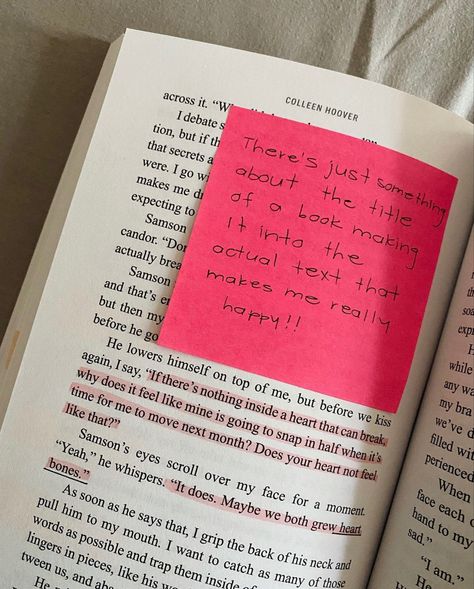 COLLEEN HOOVER
across it.
I debate
tion, but if th
that secrets a
were. I go wi
makes me dr
expecting to
Samson
candor. "Don
actually break
Samson
and that's e
but then my
before he go
There's just something
about the title
of a book making
It into the
actual text that
makes me really
happy!!
He lowers himself on top of me, but before we kiss
again, I say, "If there's nothing inside a heart that can break,
why does it feel like mine is going to snap in half when it's
time for me to move next month? Does your heart not feel
like that?"
Samson's eyes scroll over my face for a moment.
"Yeah," he whispers. "It does. Maybe we both grew heart
bones."
As soon as he says that, I grip the back of his neck and
pull him to my mouth. I want to catch as many of those
words as possible and trap them inside of
lingers in pieces, like his wo
tween us, and abo
He
while
any wa
my bra
we've d
filled wit
perienced
When
face each
hand to my
sad."
"I am."